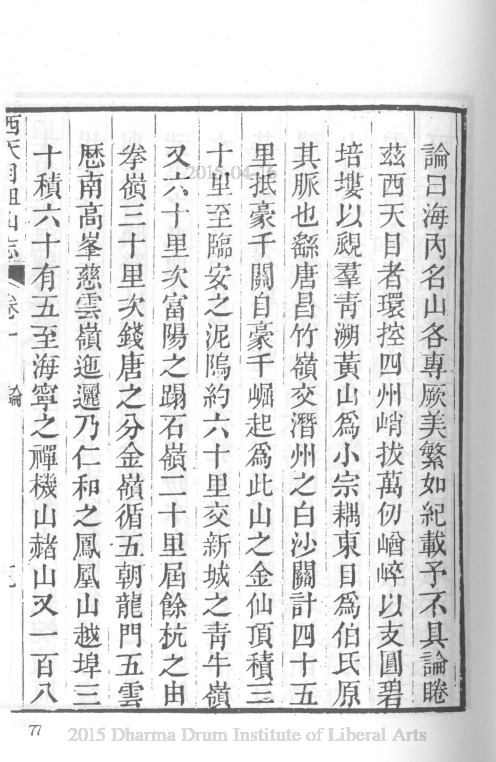 論曰海內名山各專厥美繁如紀載予不具論睠
茲西天目者環控四州峭拔萬仞崷崪以支圓碧
培塿以覛羣靑溯黃山爲小宗耦東目爲伯氏原
其脈也繇唐昌竹嶺交潛州之白沙關計四十五
里抵豪千關自豪千崛起爲此山之金仙頂積三
十里至臨安之泥隖約六十里交新城之靑牛嶺
又六十里次富陽之蹋石嶺二十里屆餘杭之由
拳嶺三十里次錢唐之分金嶺循五朝龍門五雲
歷南高峯慈雲嶺迤邐乃仁和之鳳凰山越埠三
十積六十有五至海寧之禪機山赭山又一百八
西天目祖山志 卷一 論 九
2015
77
2015 Dharma Drum Institute of Liberal Arts